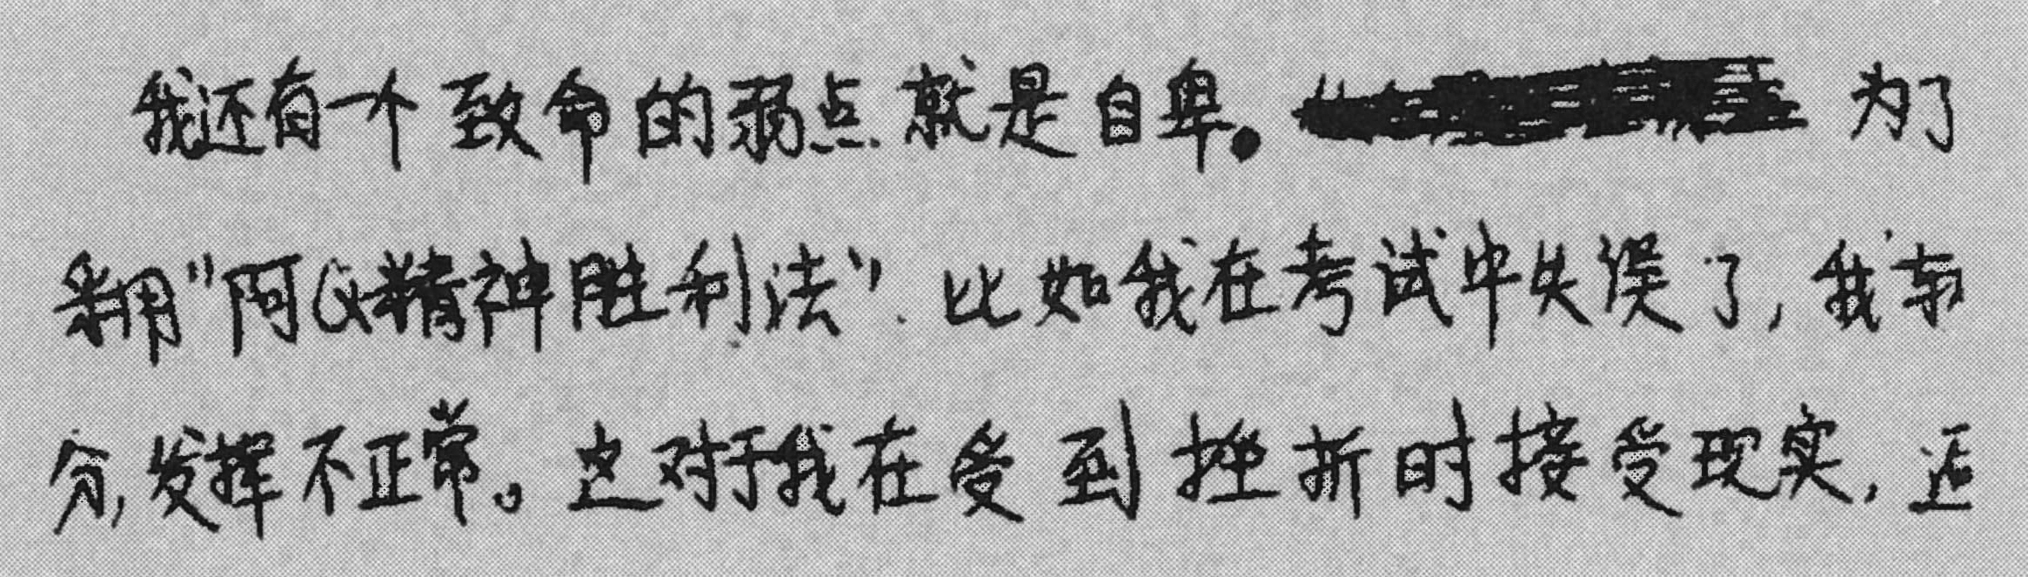 我还有一个致命的弱点就是自卑。 为了
采用"阿Q精神胜利法".比如我在考试中失误了,我
分,发挥不正常。这对于我在受到挫折时接受现实,还